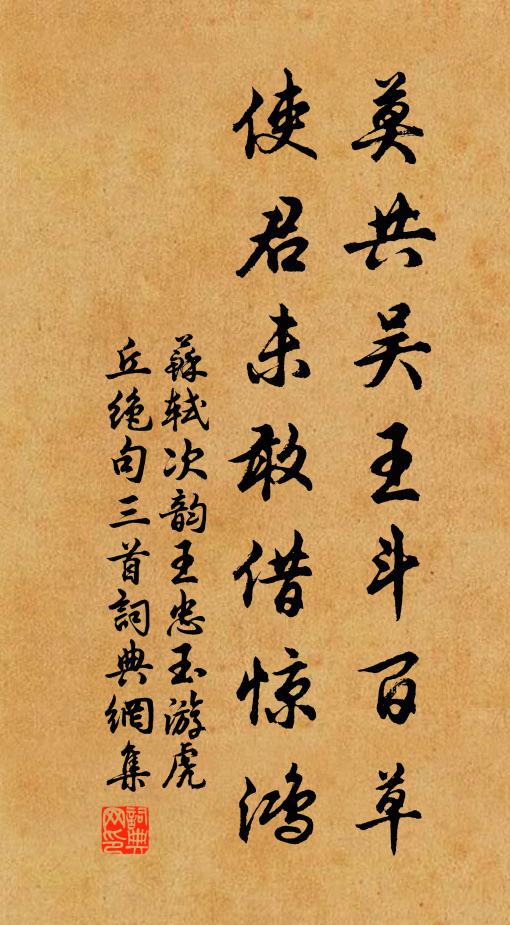 莫共吴王斗百草
使君未敢借惊鸿
蘇轼次韵王忠玉游虎
丘绝句三首詞典網集
詞典网印